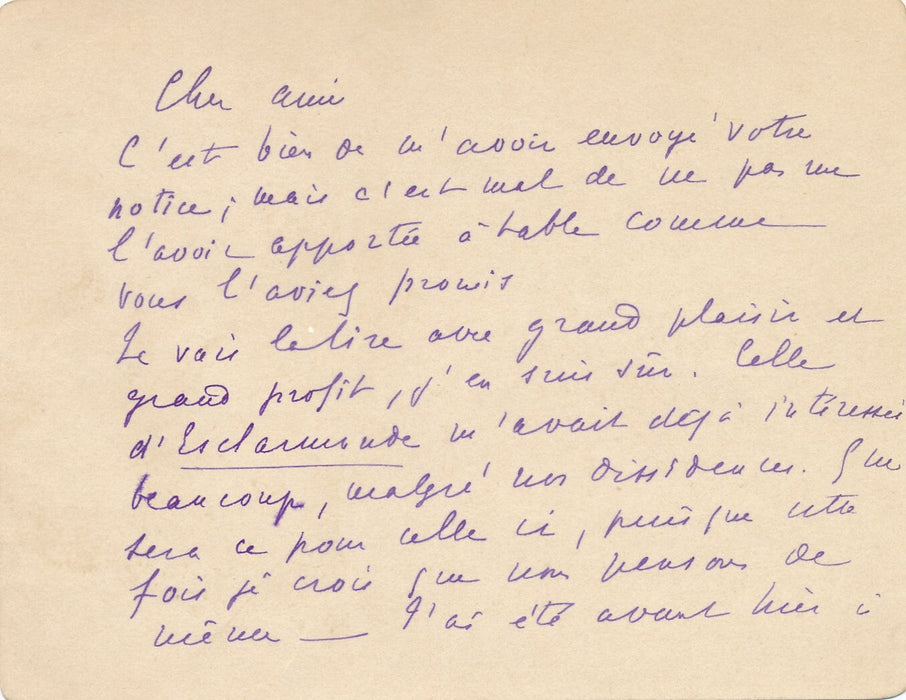 Cher ami
C'est bien de m'avoir envoyé votre
notice ; mais c'est mal de ne pas me
l'avoir apportée à table comme
vous l'aviez promis
Je vais la lire avec grand plaisir et
grand profit, j'en suis sûr. Celle
d'Esclarmonde m'avait déjà intéressé
beaucoup, malgré nos dissidences. Que
sera ce pour celle ci, puisque cette
fois je crois que nous pensons de
même — J'ai été avant hier à